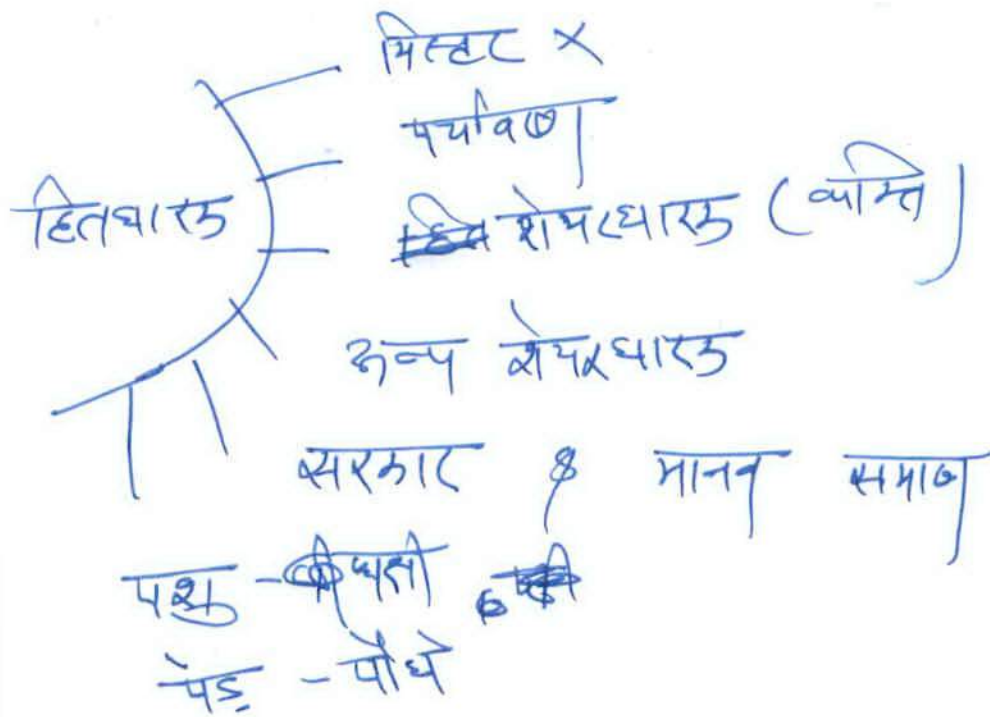 मिस्टर X
पर्यावरण
हितधारक शेयरधारक (व्यक्ति)
अन्य शेयरधारक
सरकार & मानव समाज
पशु - पक्षी
पेड़ - पौधे